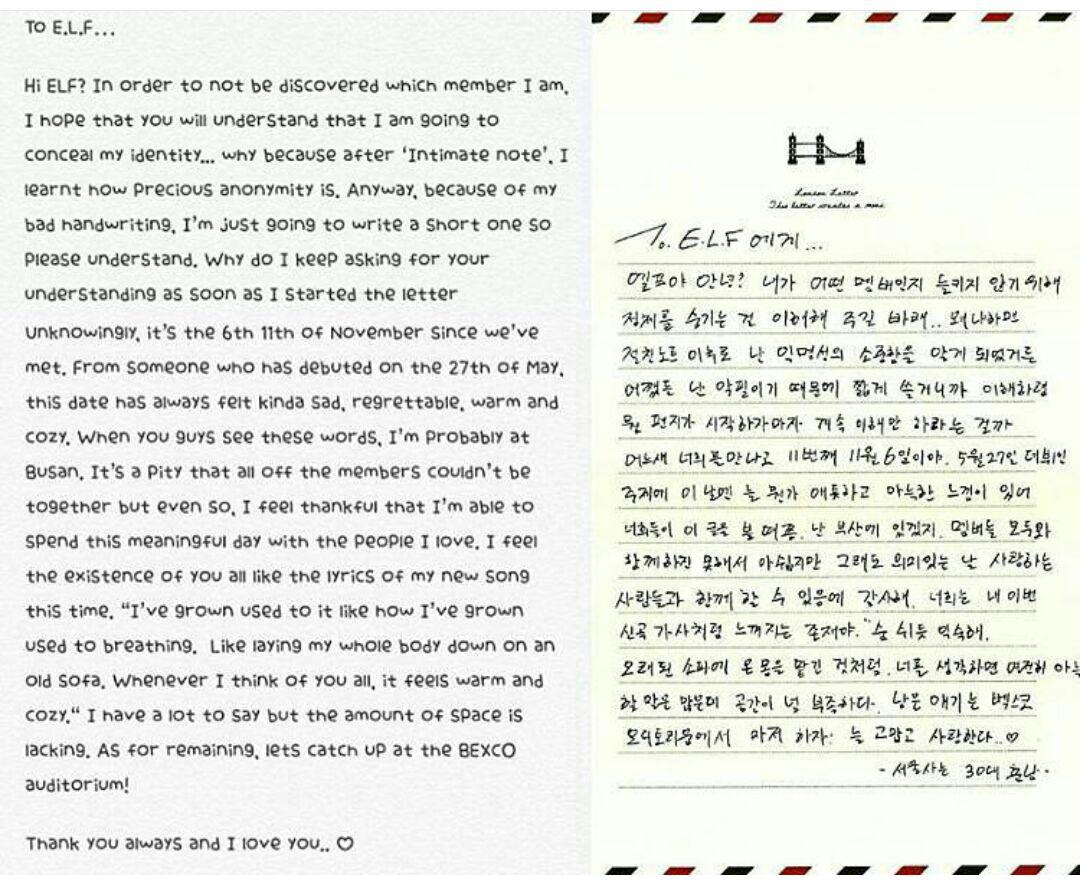 TO E.L.F...
Hi ELF? In order to not be discovered which member I am,
I hope that you will understand that I am going to
conceal my identity... why because after ‘Intimate note’, I
learnt how precious anonymity is. Anyway, because of my
bad handwriting, I'm just going to write a short one so
please understand. Why do I keep asking for your
understanding as soon as I started the letter
unknowingly, it's the 6th 11th of November since we've
met. From someone who has debuted on the 27th of May,
this date has always felt kinda sad, regrettable, warm and
cozy. When you guys see these words, I'm probably at
Busan. It's a pity that all off the members couldn't be
together but even so, I feel thankful that I'm able to
spend this meaningful day with the people I love. I feel
the existence of you all like the lyrics of my new song
this time. “I've grown used to it like how I've grown
used to breathing. Like laying my whole body down on an
old sofa. Whenever I think of you all, it feels warm and
cozy.“ I have a lot to say but the amount of space is
lacking. As for remaining, lets catch up at the BEXCO
auditorium!
Thank you always and I love you.. ♡
London Letter
This letter creates a mood
To. E.L.F 에게...
엘프야 안녕? 내가 어떤 멤버인지 들키지 않기 위해
정체를 숨기는 건 이해해 주길 바래.. 왜냐하면
절친노트 이후로 난 익명성의 소중함을 알게 되었거든
어쨌든 난 악필이기 때문에 짧게 쓸거니까 이해하렴
뭔 편지가 시작하자마자 계속 이해만 하라는 걸까
어느새 너희를 만나고 11번째 11월 6일이야. 5월 27일 데뷔인
주제에 이 날엔 늘 뭔가 애틋하고 아늑한 느낌이 있어
너희들이 이 글을 볼 때쯤, 난 부산에 있겠지. 멤버들 모두와
함께하진 못해서 아쉽지만 그래도 의미있는 날 사랑하는
사람들과 함께 할 수 있음에 감사해. 너희는 내 이번
신곡 가사처럼 느껴지는 존재야. “숨 쉬듯 익숙해,
오래된 소파에 온 몸을 맡긴 것처럼. 너를 생각하면 여전히 아늑
할 말은 많은데 공간이 넘 부족하다. 남은 얘기는 벡스코
오디토리움에서 마저 하자. 늘 고맙고 사랑한다..♡
- 서울사는 30대 훈남 -